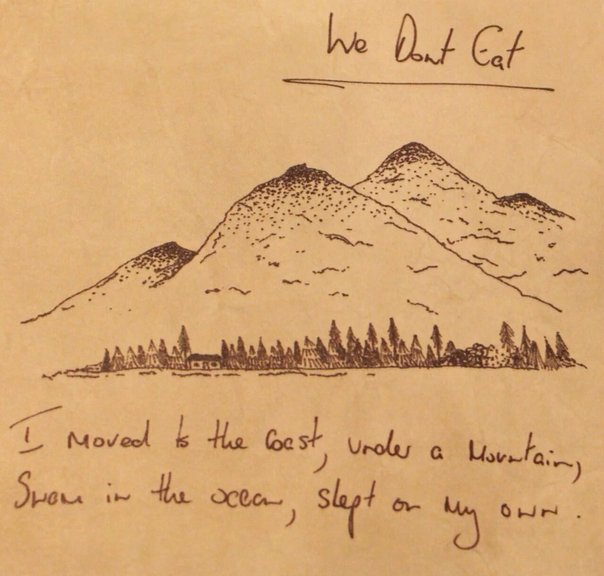 We Dont Eat
I moved to the Coast, under a Mountain,
Swam in the ocean, slept on my own.